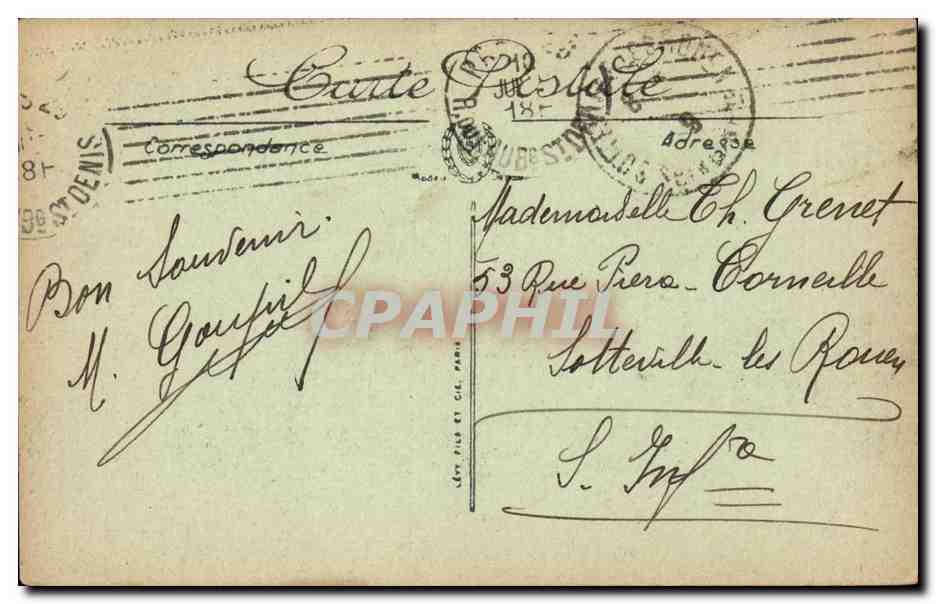 Carte Postale
Correspondance
Adresse
ST DENIS
Bon Souvenir.
M. Goupil
Mademoiselle Th. Grenet
53 Rue Piere - Corneille
Sotteville - les Rouen
S. Inf re
LÉVY FILS ET CIE, PARIS
CPAPHIL